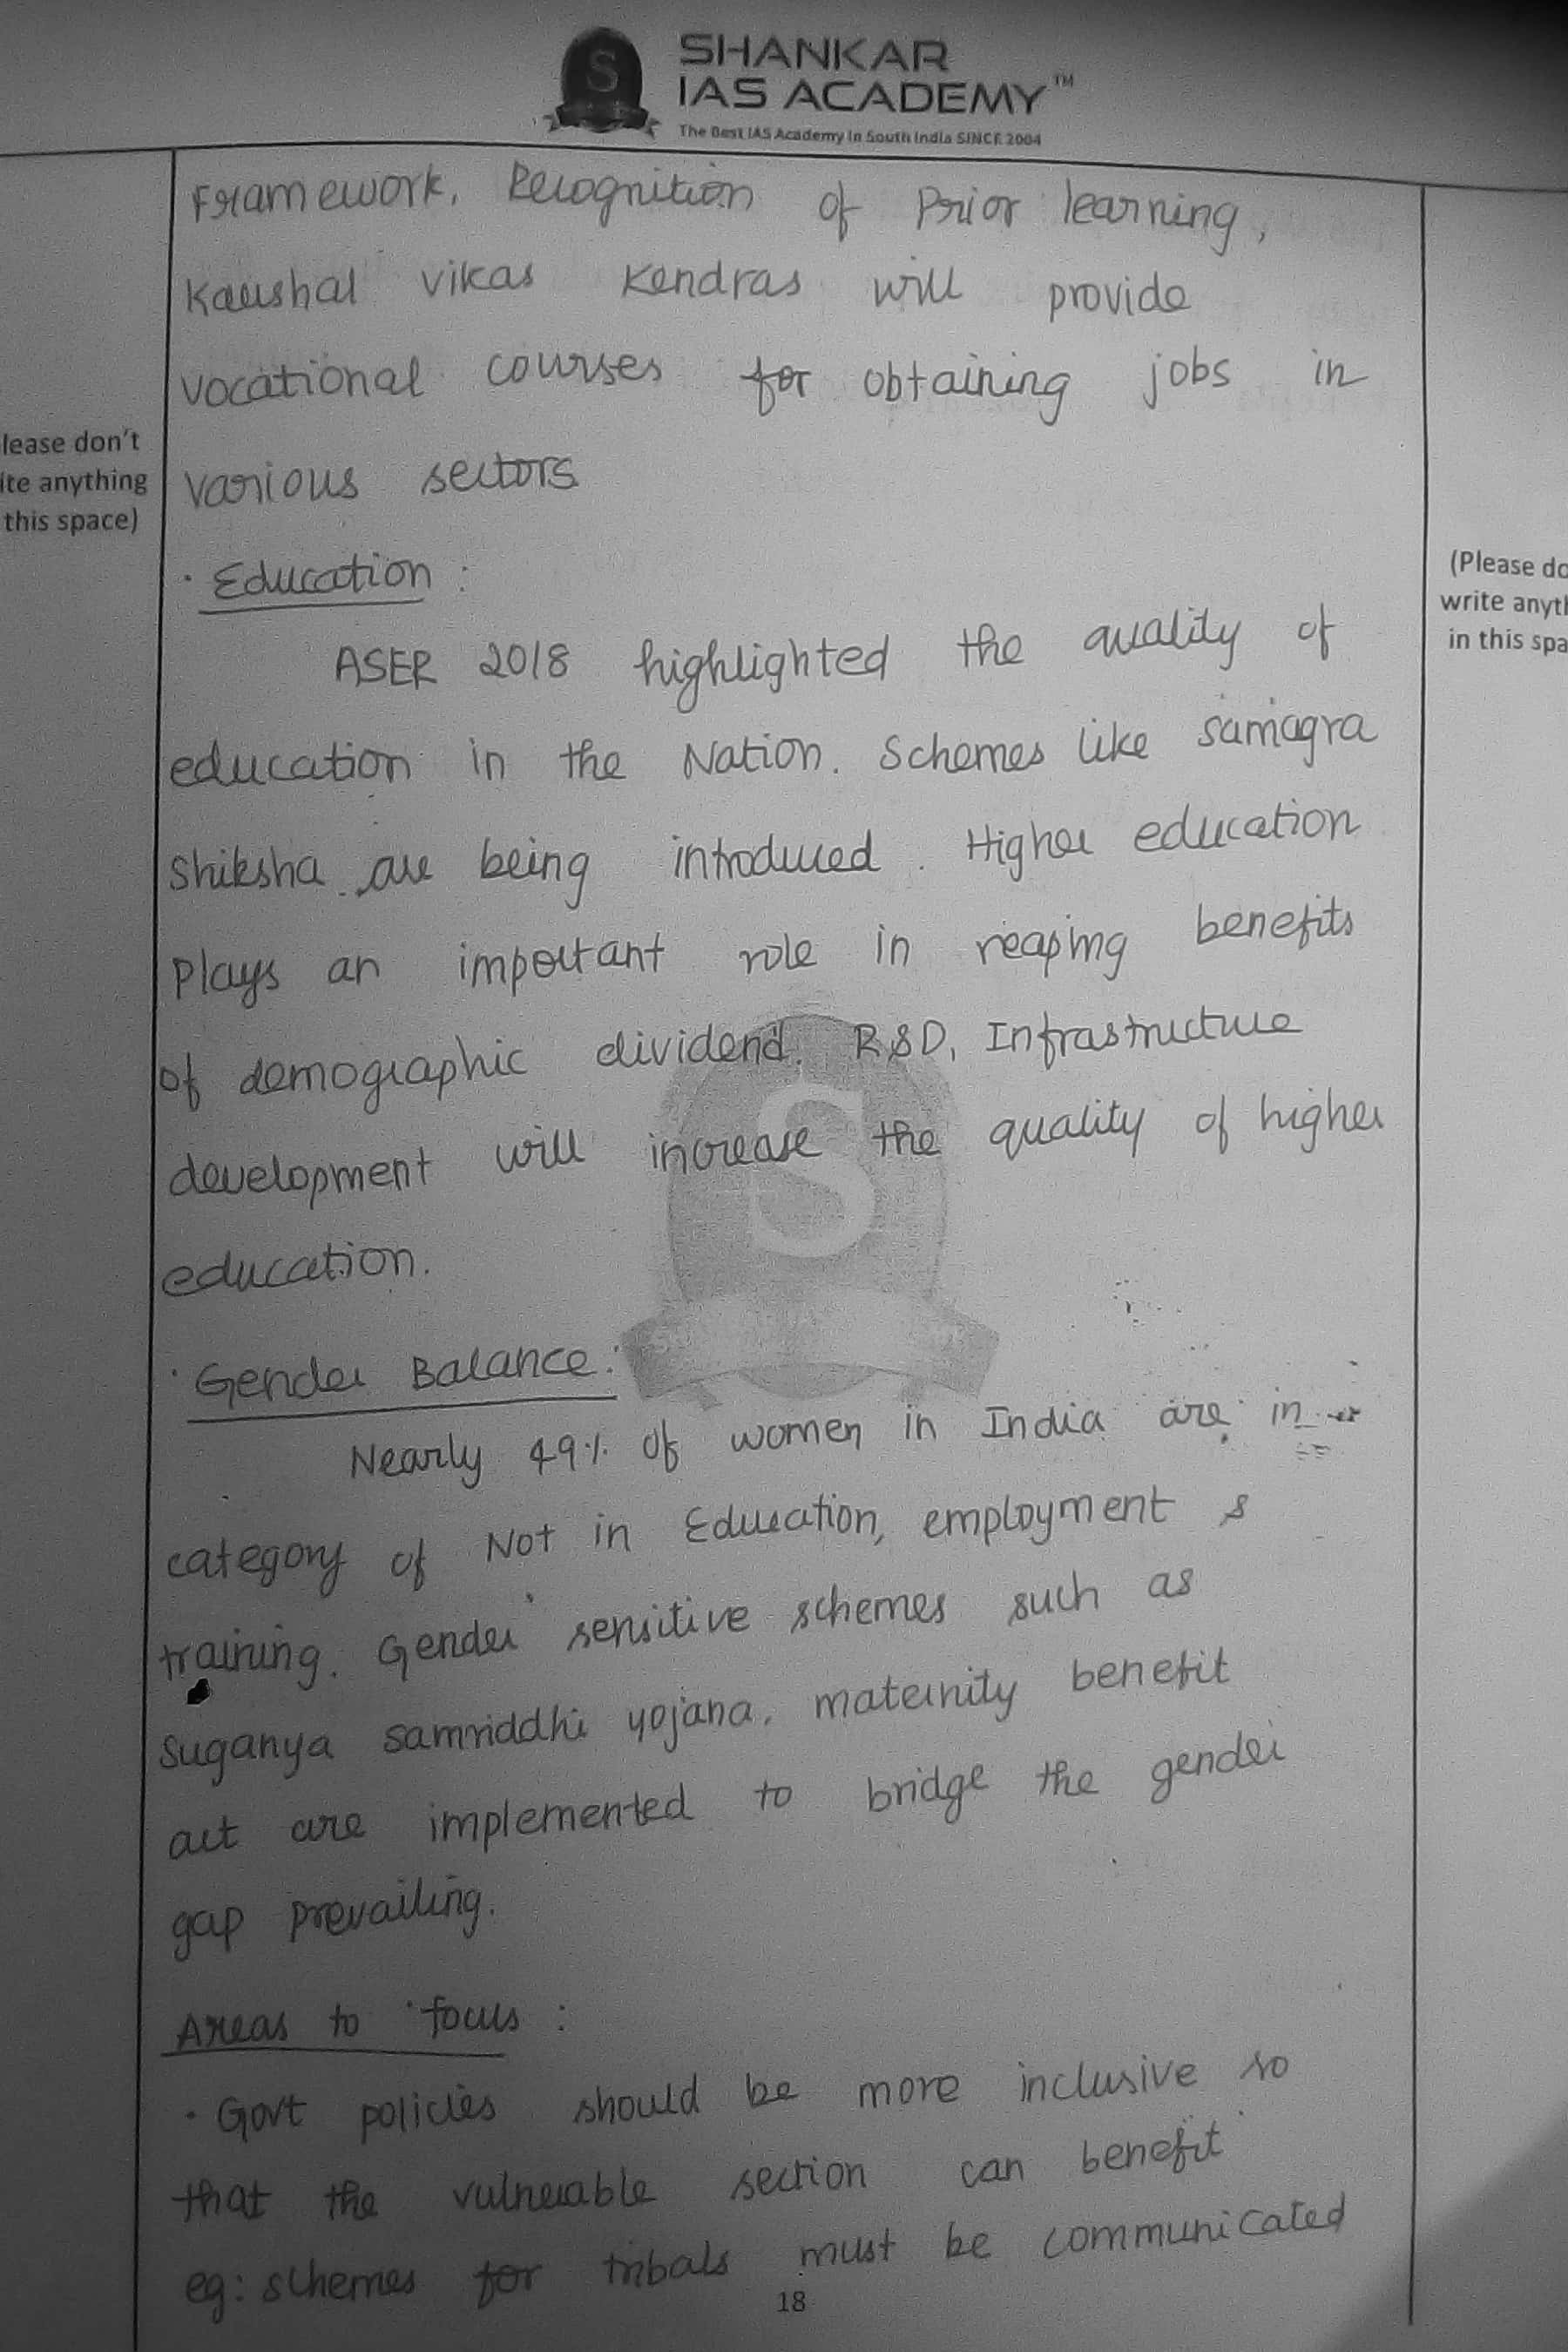 SHANKAR
IAS ACADEMY™
The Best IAS Academy In South India SINCE 2004
Framework, Recognition of Prior learning,
Kaushal vikas Kendras will provide
vocational courses for obtaining jobs in
various sectors
lease don't
ite anything
this space)
(Please do
write anyth
in this spa
· Education :
ASER 2018 highlighted the quality of
education in the Nation. Schemes like samagra
Shiksha are being introduced. Higher education
Plays an important role in reaping benefits
of demographic dividend. R&D, Infrastructure
development will increase the quality of higher
education.
· Gender Balance :
Nearly 49% of women in India are in
category of Not in Education, employment &
training. Gender sensitive schemes such as
Suganya samriddhi yojana, maternity benefit
act are implemented to bridge the gender
gap prevailing.
Areas to focus :
· Govt policies should be more inclusive so
that the vulnerable section can benefit
eg: schemes for tribals must be communicated
18
S